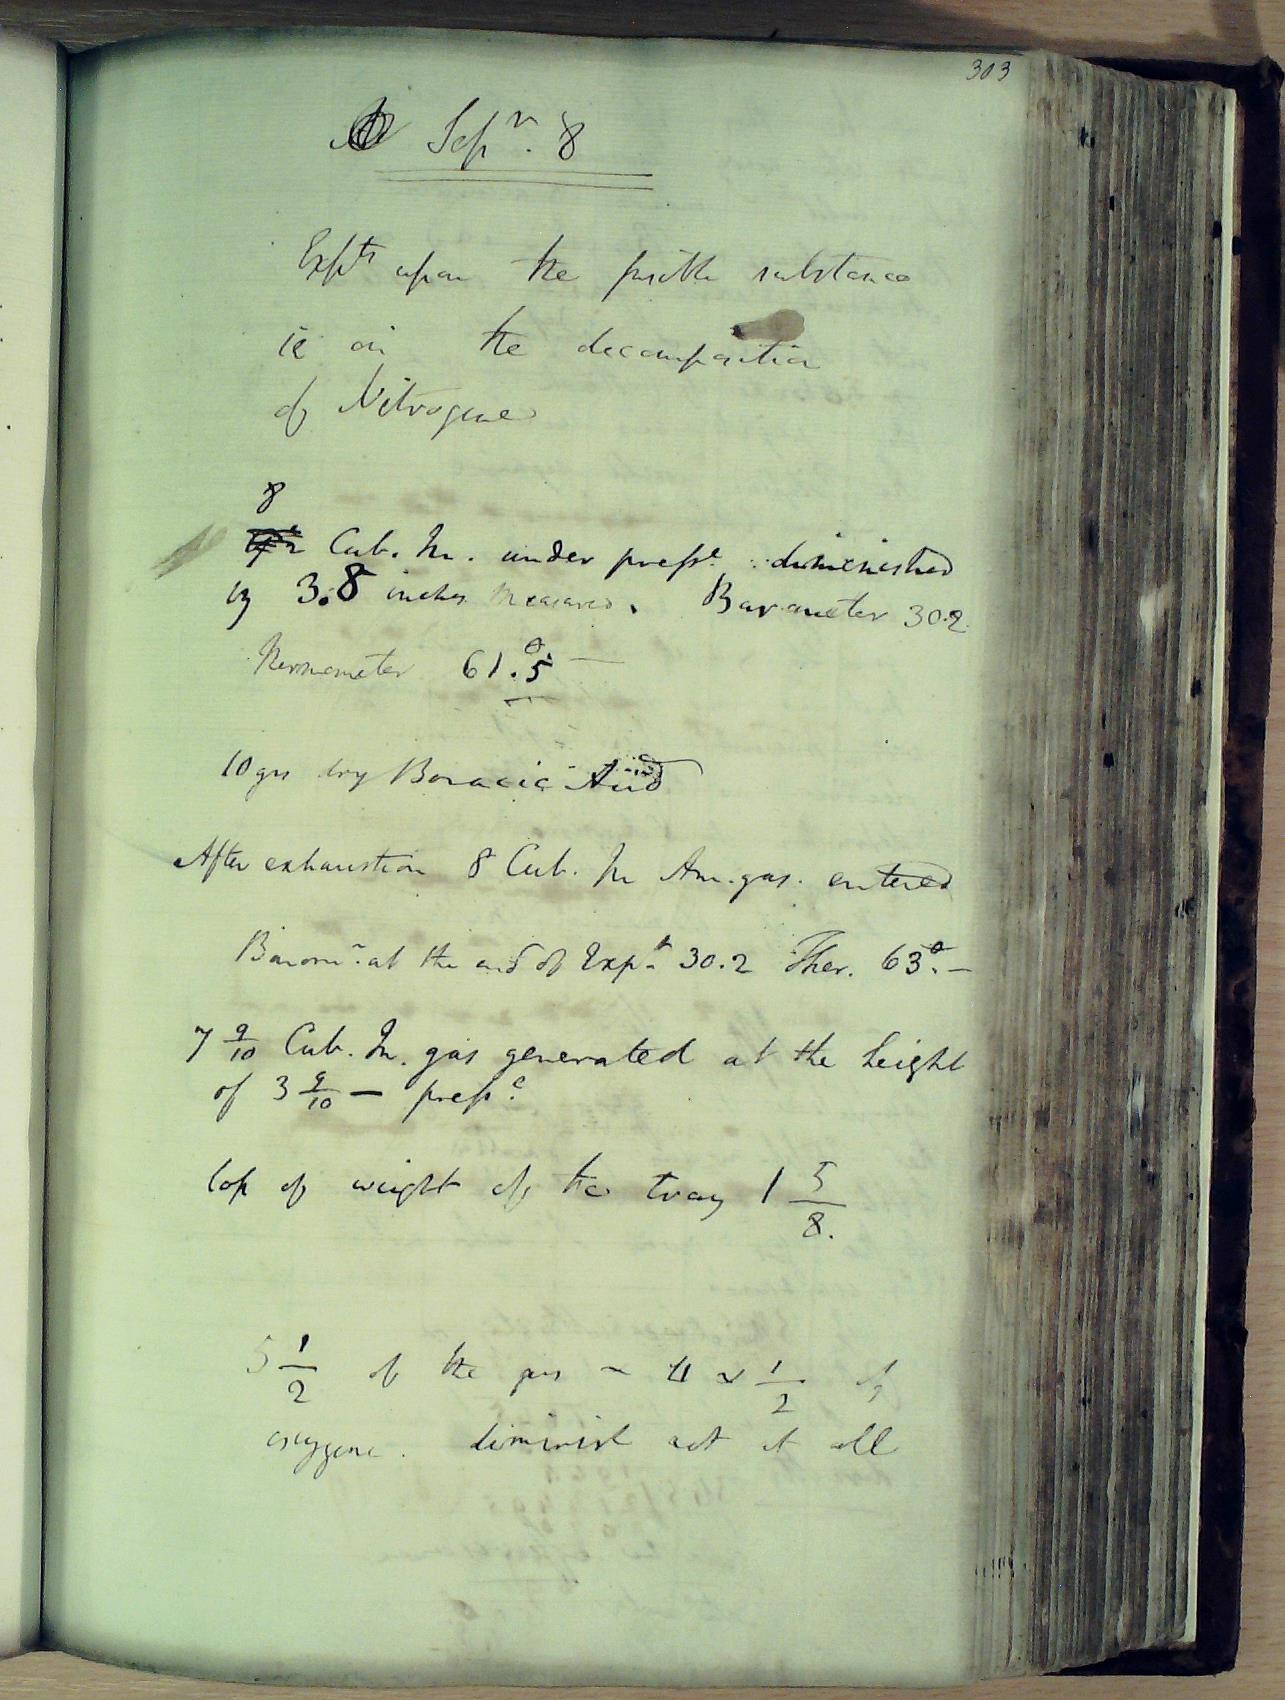 303
Sepr. 8
Expts upon the fusible substance
ie on the decomposition
of Nitrogene
8
Cub. In. under presse. diminished
by 3.8 inches measured. Barometer 30.2
Thermometer 61°.5 —
10 grs dry Boracic Acid
After exhaustion 8 Cub. In Am. gas. entered
Baromr. at the end of Expt. 30.2 Ther. 63°. —
7 9/10 Cub. In. gas generated at the height
of 3 9/10 — presse.
loss of weight of the tray 1 5/8.
5 1/2 of the gas ~ 1/2 of
oxygene. diminish not at all